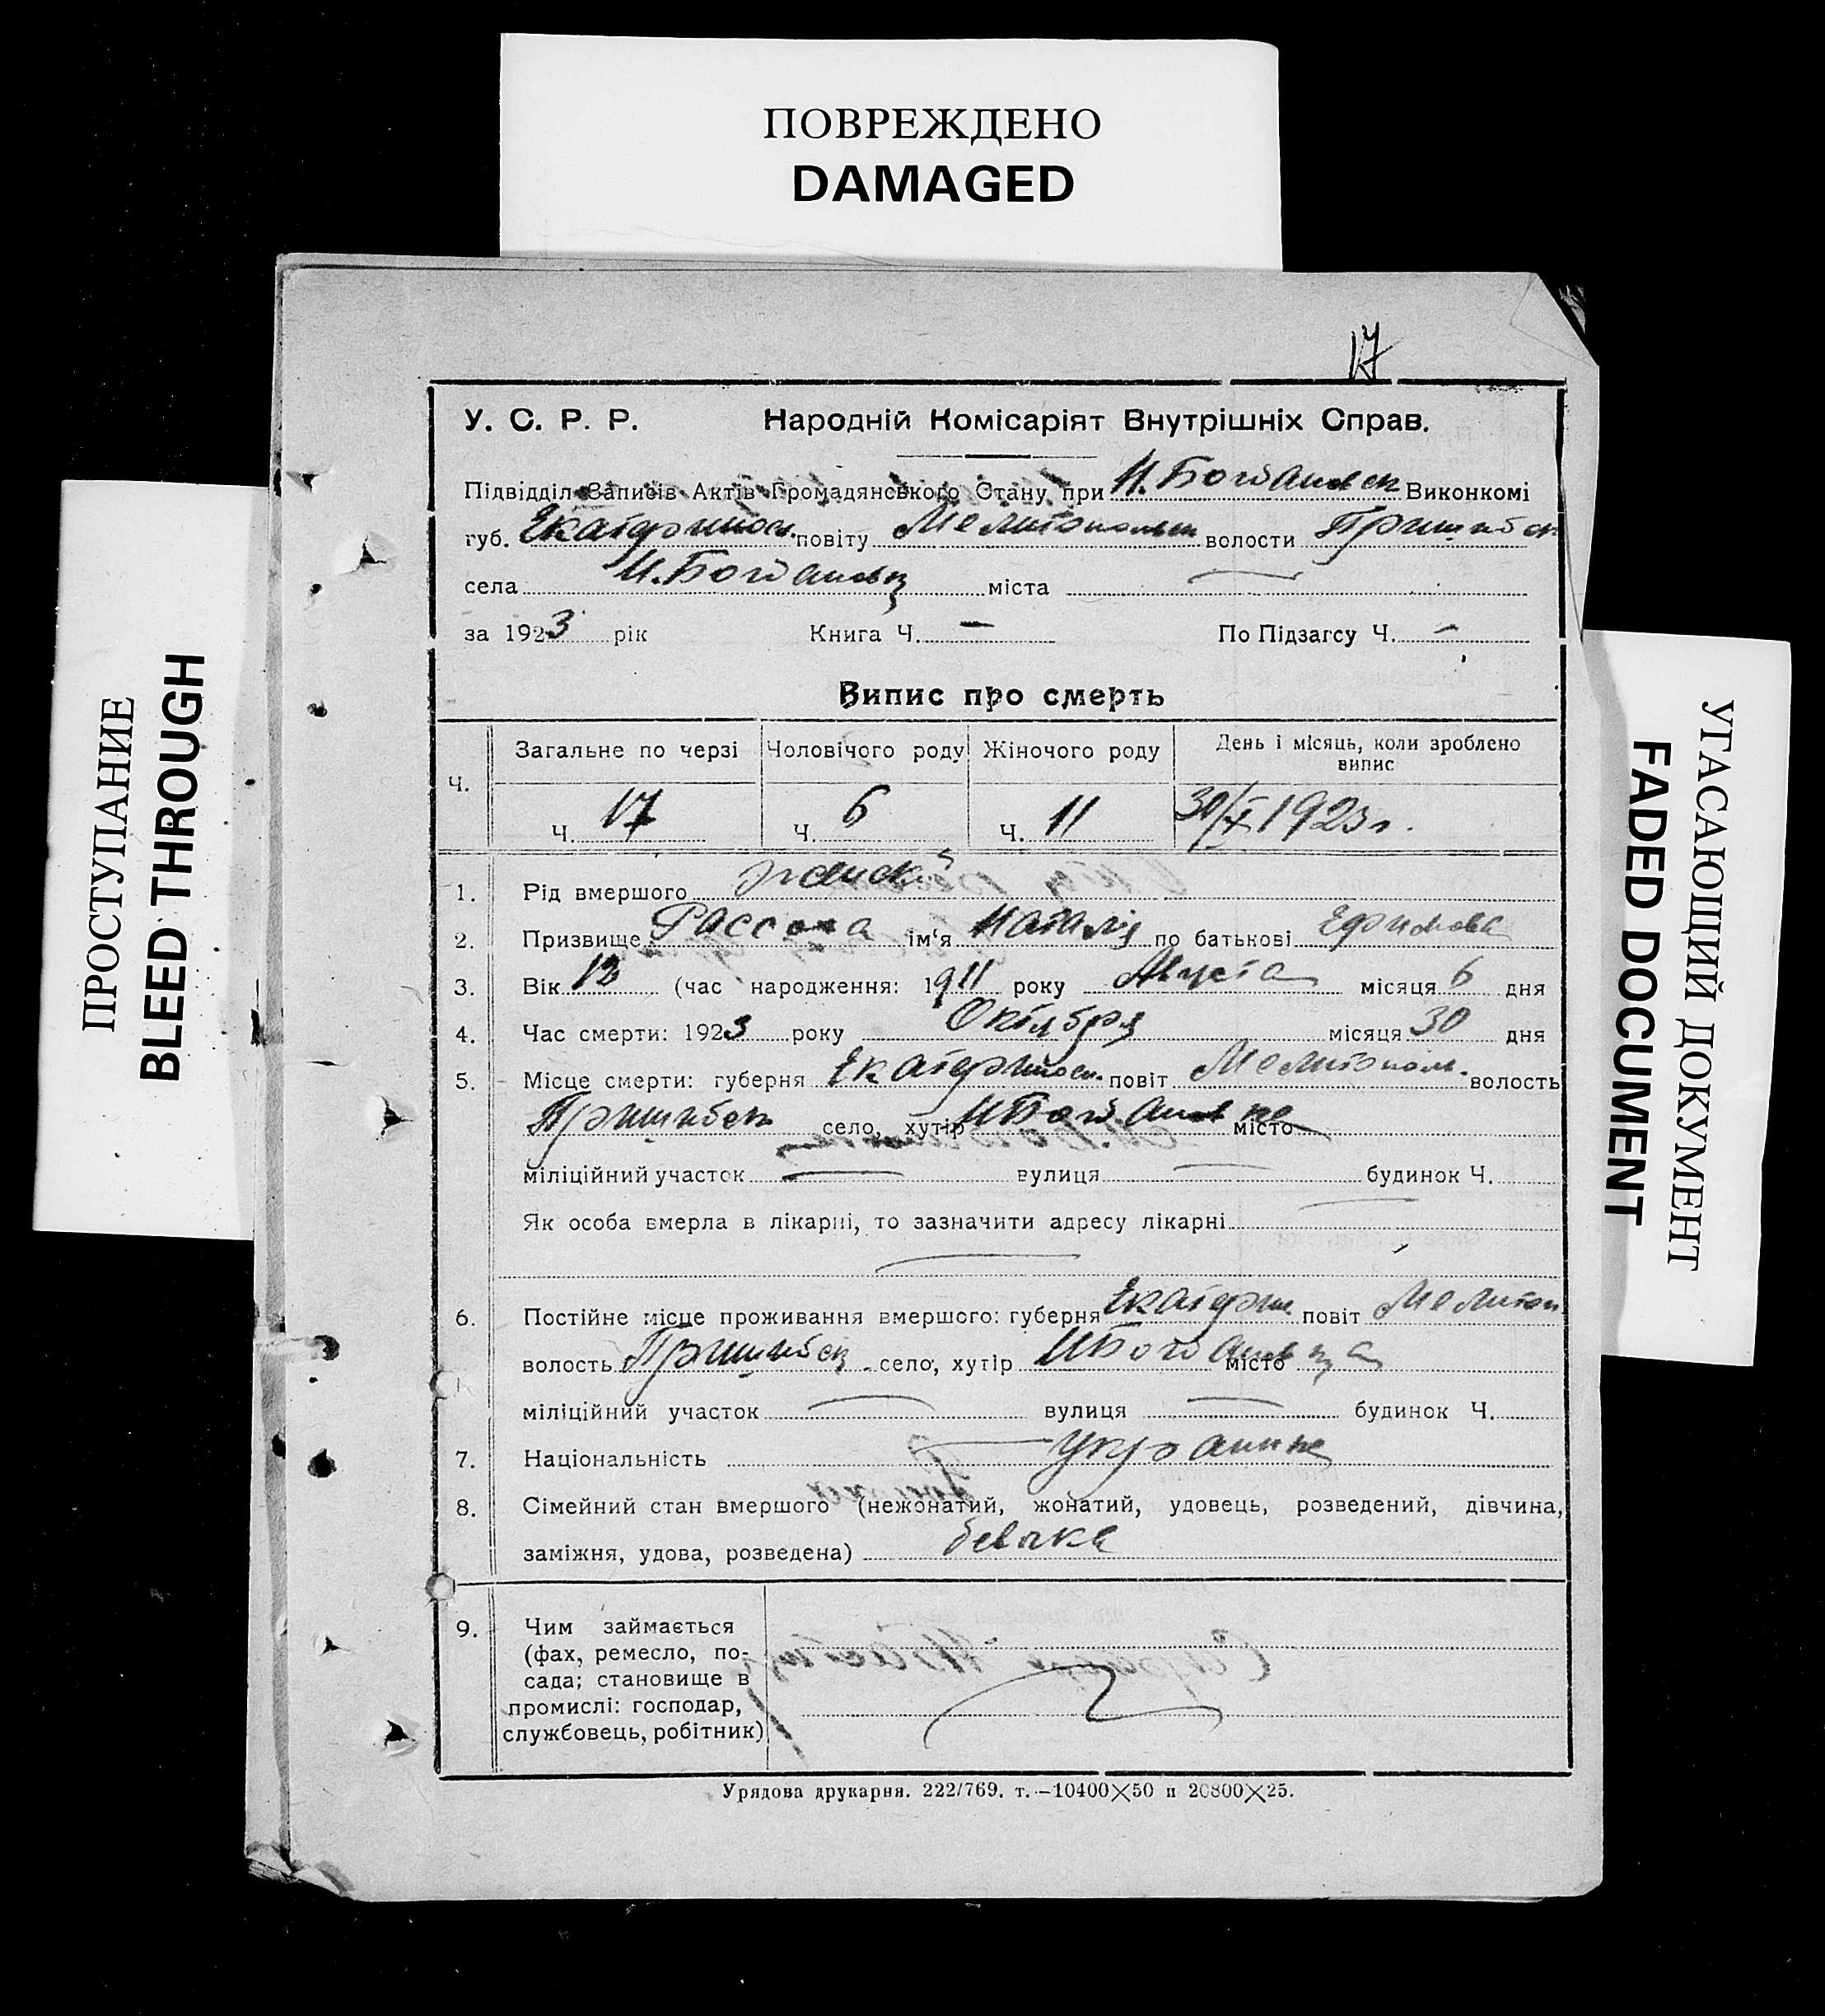 ПОВРЕЖДЕНО
DAMAGED
ПРОСТУПАНИЕ
BLEED THROUGH
УГАСАЮЩИЙ ДОКУМЕНТ
FADED DOCUMENT
17
У. С. Р. Р. Народній Комісаріят Внутрішніх Справ.
Підвідділ Записів Актів Громадянського Стану при Н.Богдановск Виконкомі
губ. Екатеринос. повіту Мелитопольск волости Пришибск
села Н.Богдановка міста —
за 1923 рік Книга Ч. — По Підзагсу Ч. —
Випис про смерть
Ч. Загальне по черзі Чоловічого роду Жіночого роду День і місяць, коли зроблено випис
Ч. 17 Ч. 6 Ч. 11 30/X 1923 г.
1. Рід вмершого женский
2. Призвище Рассоха ім‘я Наталія по батькові Ефимовна
3. Вік 12 (час народження: 1911 року Августа місяця 6 дня
4. Час смерти: 1923 року Октября місяця 30 дня
5. Місце смерти: губерня Екатеринос. повіт Мелитопол. волость
Пришибск село, хутір Н Богдановке місто
міліційний участок — вулиця — будинок Ч.
Як особа вмерла в лікарні, то зазначити адресу лікарні —
6. Постійне місце проживання вмершого: губерня Екатерин. повіт Мелитоп
волость Пришибск село, хутір Н Богдановка місто
міліційний участок — вулиця — будинок Ч.
7. Національність Украинка
8. Сімейний стан вмершого (нежонатий, жонатий, удовець, розведений, дівчина,
заміжня, удова, розведена) девочка
9. Чим займається
(фах, ремесло, по-
сада; становище в
промислі: господар,
службовець, робітник)
Урядова друкарня. 222/769. т.—10400×50 п 20800×25.